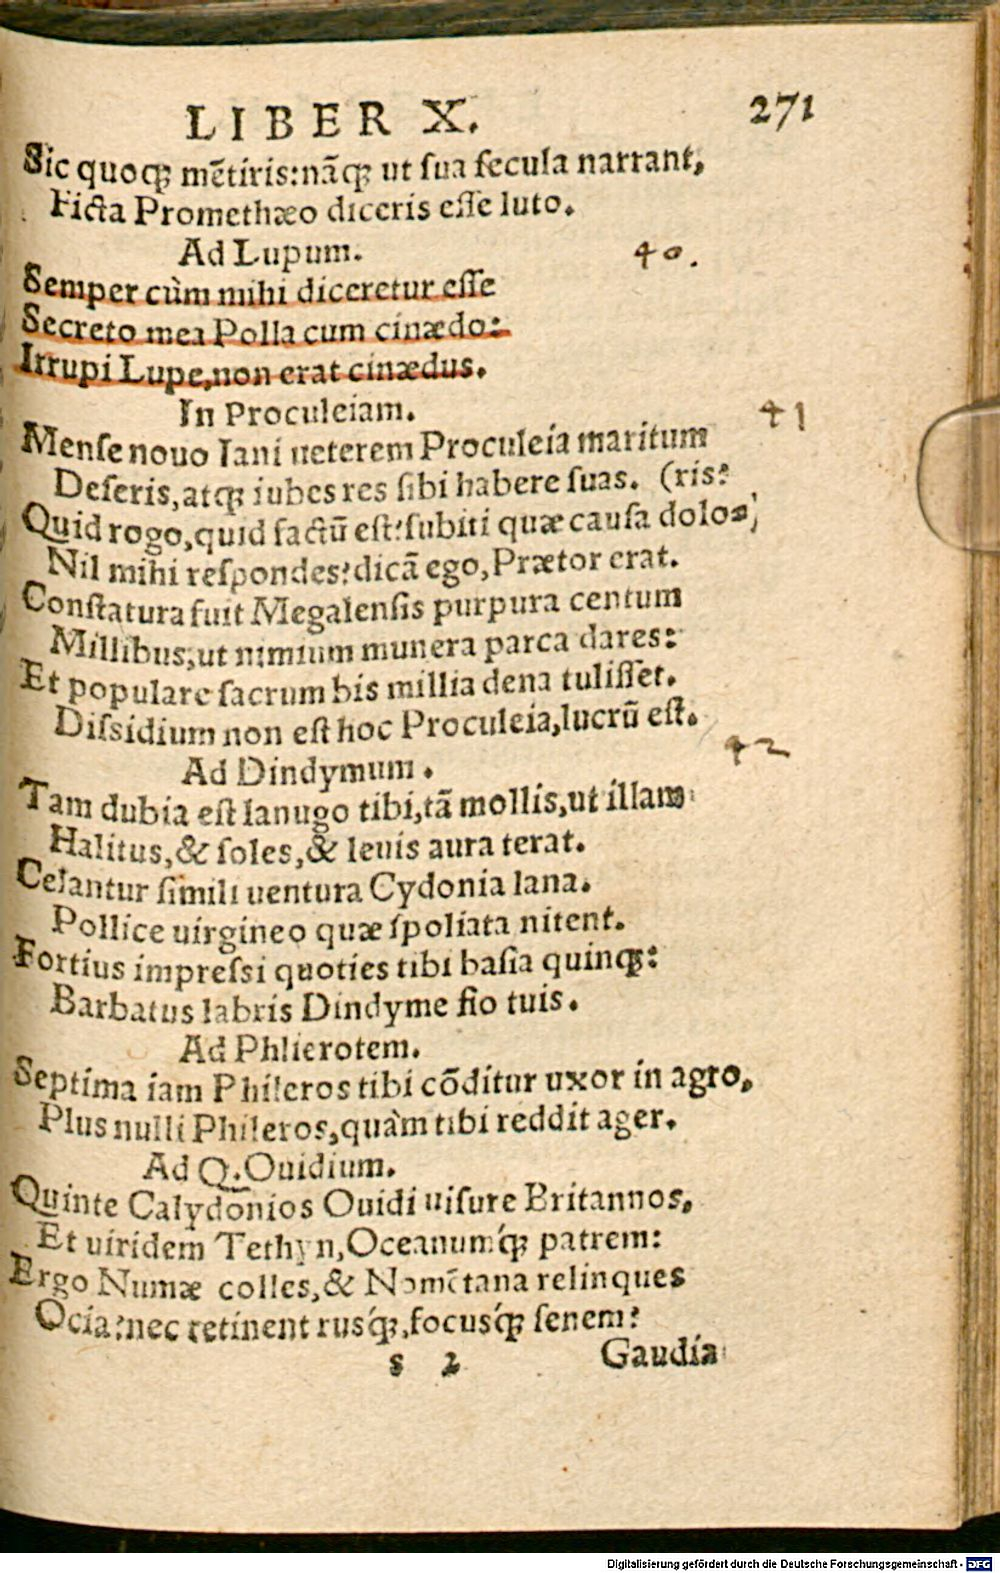 LIBER X. 271
Sic quoq́ꝫ mẽtiris: nãq́ꝫ ut sua secula narrant,
Ficta Promethæo diceris esse luto.
Ad Lupum. 40.
Semper cùm mihi diceretur esse
Secreto mea Polla cum cinædo:
Irrupi Lupe, non erat cinædus.
In Proculeiam. 41
Mense nouo Iani ueterem Proculeia maritum
Deseris, atq́ꝫ iubes res sibi habere suas. (ris?
Quid rogo, quid factũ est? subiti quæ causa dolo=
Nil mihi respondes? dicã ego, Prætor erat.
Constatura fuit Megalensis purpura centum
Millibus, ut nimium munera parca dares:
Et populare sacrum bis millia dena tulisset.
Dissidium non est hoc Proculeia, lucrũ est.
42
Ad Dindymum.
Tam dubia est lanugo tibi, tã mollis, ut illam
Halitus, & soles, & leuis aura terat.
Celantur simili uentura Cydonia lana.
Pollice uirgineo quæ spoliata nitent.
Fortius impressi quoties tibi basia quinq́ꝫ:
Barbatus labris Dindyme fio tuis.
Ad Phlierotem.
Septima iam Phileros tibi cõditur uxor in agro,
Plus nulli Phileros, quàm tibi reddit ager.
Ad Q. Ouidium.
Quinte Calydonios Ouidi uisure Britannos,
Et uiridem Tethyn, Oceanumq́ꝫ patrem:
Ergo Numæ colles, & Nomẽtana relinques
Ocia? nec retinent rusq́ꝫ, focusq́ꝫ senem?
s 2 Gaudia
Digitalisierung gefördert durch die Deutsche Forschungsgemeinschaft - DFG